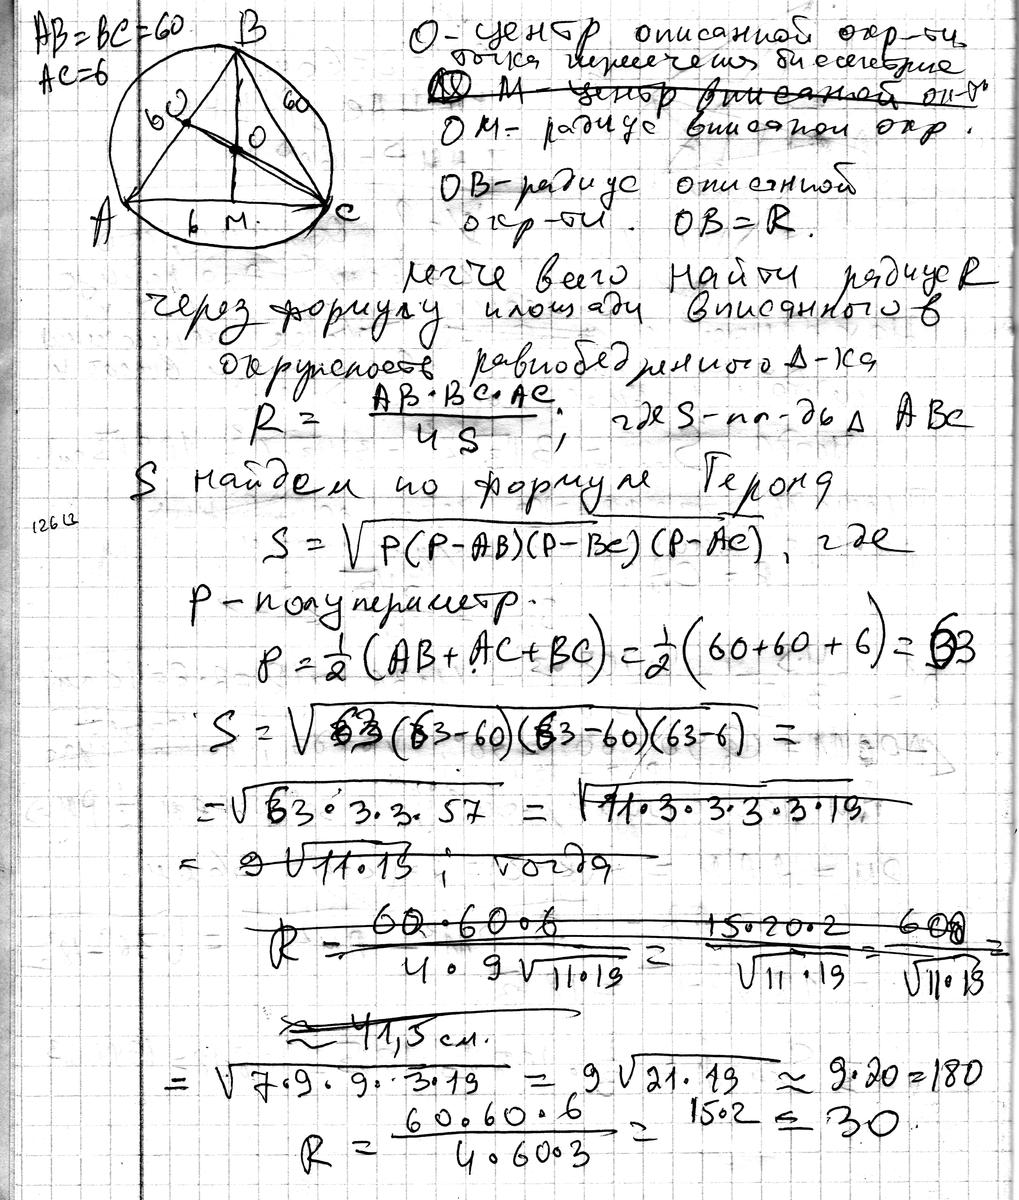 AB=BC=60
AC=6
B
60
60
O
A
6
M.
C
O - центр описанной окр-ти
точка пересечения биссектрис
M - центр вписаной ок-ти
OM - радиус вписаной окр.
OB - радиус описанной
окр-ти. OB = R.
легче всего найти радиус R
через формулу площади вписанного в
окружность равнобедренного Δ-ка
R = AB·BC·AC / 4S ; где S - пл-дь Δ ABC
S найдем по формуле Герона
S = √P(P-AB)(P-BC)(P-AC), где
P - полупериметр.
P = 1/2 (AB+AC+BC) = 1/2 (60+60+6) = 63
S = √63(63-60)(63-60)(63-6) =
= √63·3·3·57 = √11·3·3·3·3·19
= 9√11·19 ; тогда
R = 60·60·6 / 4·9√11·19 = 15·20·2 / √11·19 = 600 / √11·19 =
≈ 41,5 см.
= √7·9·9·3·19 = 9√21·19 ≈ 9·20=180
R = 60·60·6 / 4·60·3 = 15·2 = 30